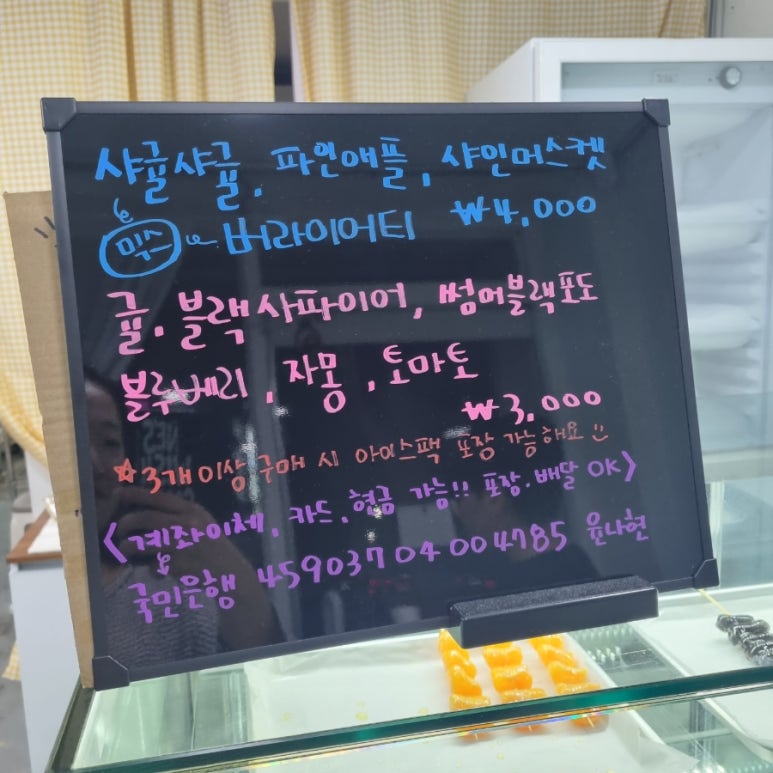 샤귤샤귤, 파인애플, 샤인머스켓
믹스 버라이어티 ₩4,000
귤. 블랙사파이어, 썸머블랙포도
블루베리, 자몽, 토마토
₩3,000
☆3개이상 구매 시 아이스팩 포장 가능해요
<계좌이체, 카드, 현금 가능!! 포장.배달 OK>
국민은행 45903704004785 윤나현